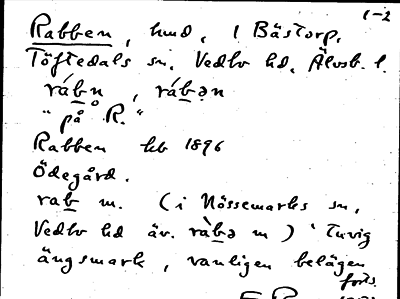 1-2
Rabben, hmd, 1 Bästorp,
Töftedals sn, Vedbo hd, Älvsb. l.
rábn, rábən
"på R."
Rabben hb 1896
Ödegård.
rab m. (i Nössemarks sn,
Vedbo hd äv. ràbə m) 'Tuvig
ängsmark, vanligen belägen
forts.